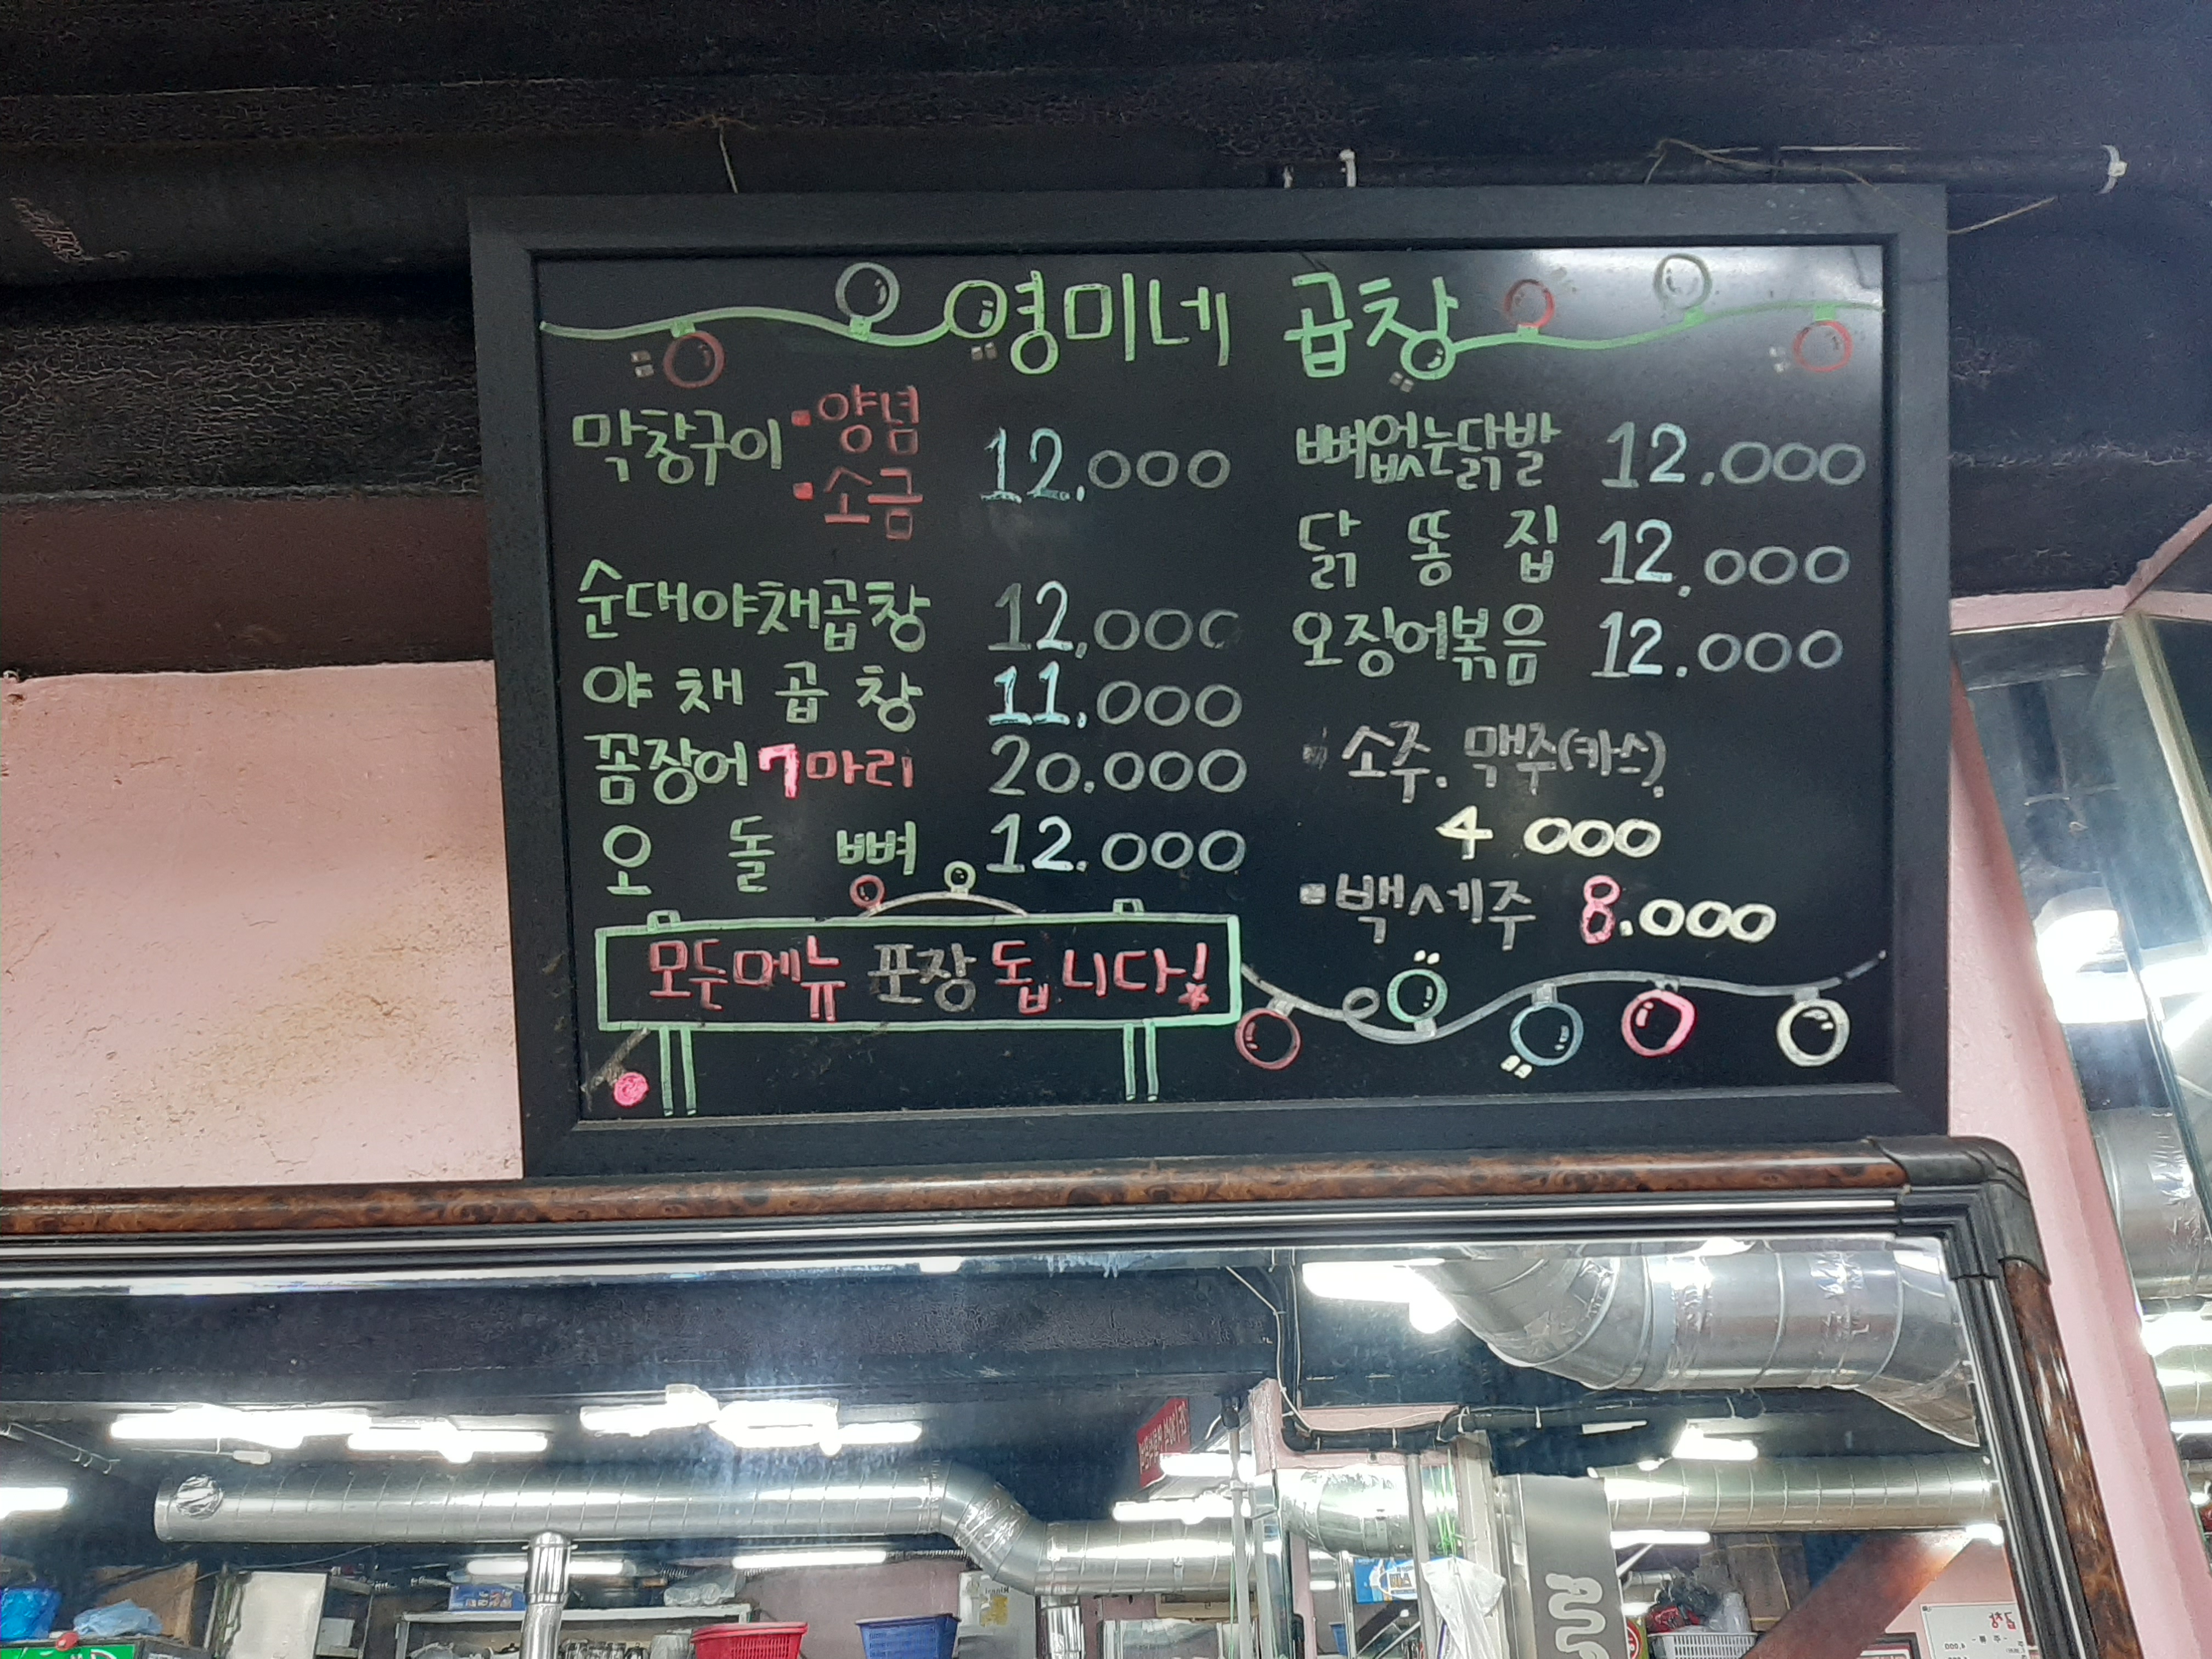 영미네 곱창
막창구이 ▪양념 ▪소금 12.000
순대야채곱창 12,000
야채곱창 11.000
꼼장어 7마리 20.000
오돌뼈 12.000
모든메뉴 포장 됩니다!
뼈없는닭발 12.000
닭똥집 12.000
오징어볶음 12.000
▪소주. 맥주(카스)
4 000
▪백세주 8.000